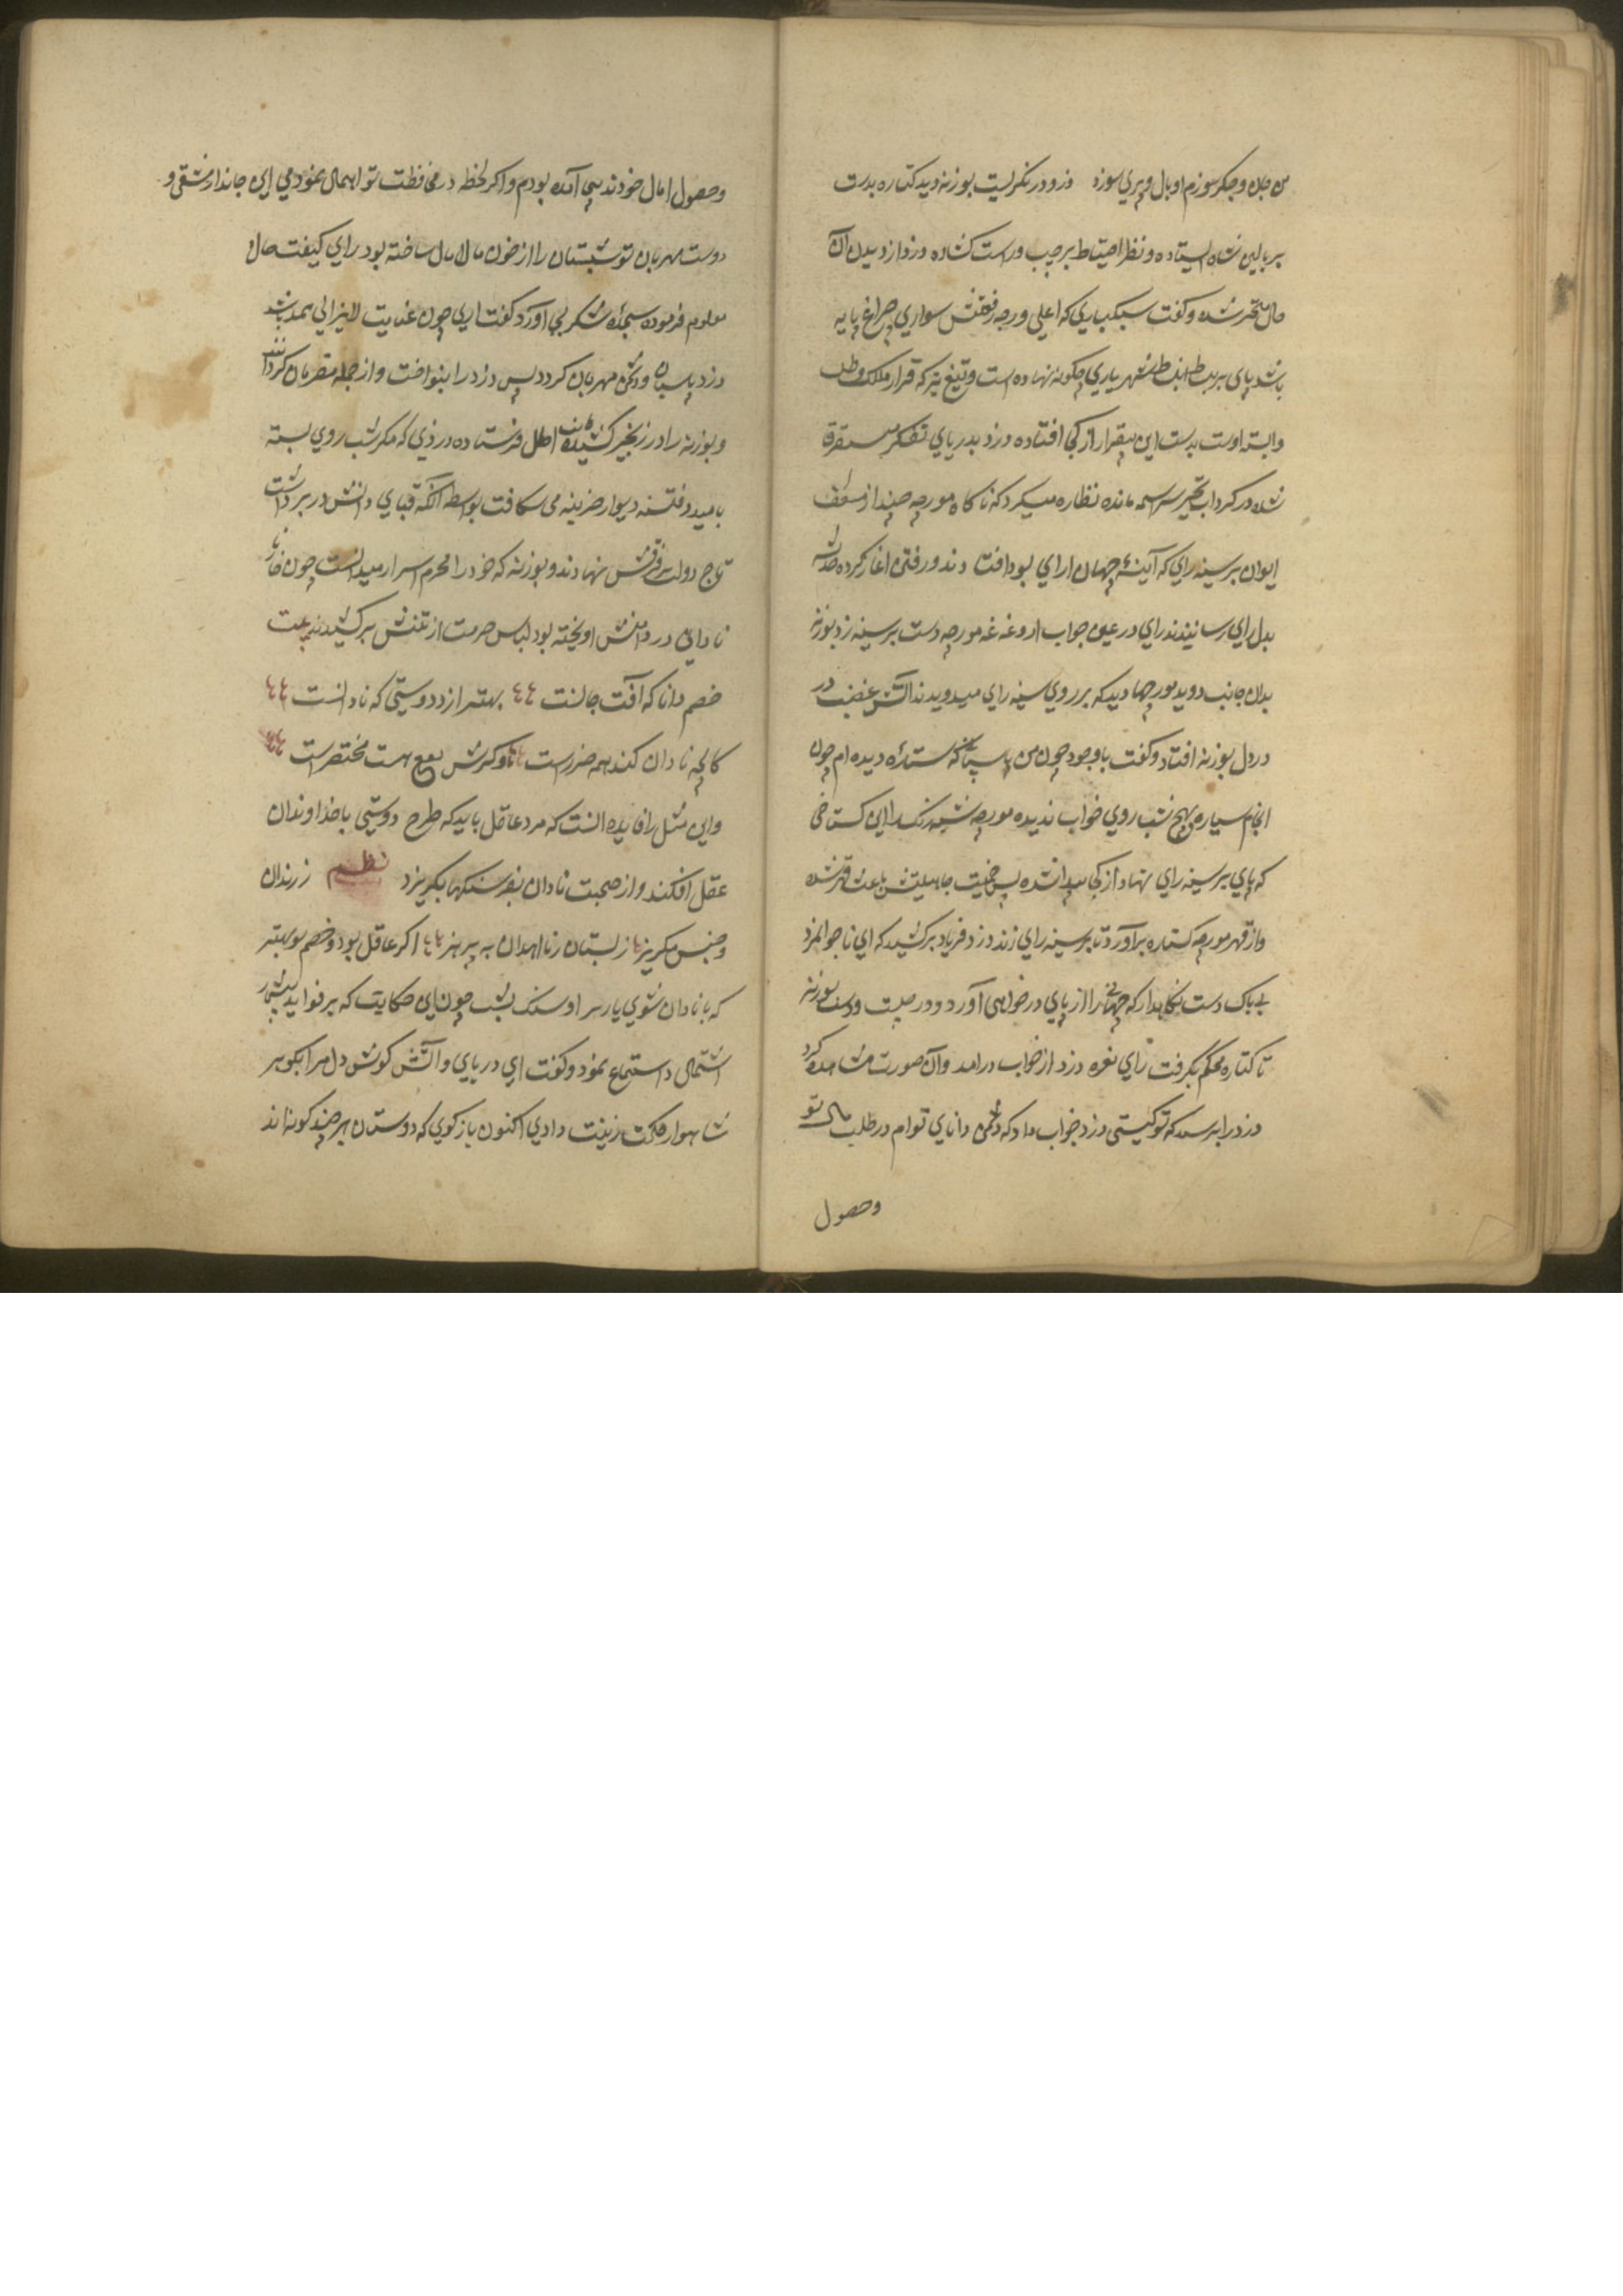 من جان و جکر سوزم او بال و پری سوزد دزد در نکریست بوزنه دید کتاره بدست
بر بالین شاه ایستاده و نظر احتیاط بر چپ و راست کشاده دزد از دیدن آن
حال متحیر شده و کفت سبکباری که اعلی درجه رفعتش سواری چراغ پایه
باشد پای بر بساط انبساط شهریاری چکونه نهاده است و تیغ تیز که قرار ملک و ملت
وابسته اوست بدست این بیقرار از کجا افتاده دزد بدریای تفکر مستغرق
شده در کرداب تحیر سراسیمه مانده نظاره میکرد که ناکاه مورچه چند از سقف
ایوان بر سینه رای که آینه جهان ارای بود افتادند و رفتن اغاز کرده خدشه
بدل رای رسانیدند رای در عین خواب از دغدغه مورچه دست بر سینه زد بوزنه
بدان جانب دوید مورچها دید که بر روی سینه رای میدویدند آتش غضب در
در دل بوزنه افتاد و کفت با وجود چون من پاسبانی که ستاره دیده ام چون
انجم سیاره هیچ شب روی خواب ندیده مورچه شبرنک را این کستاخی
که پای بر سینه رای نهاد از کجا پیدا شده پس حمیت جاهلیتش باعث قهر شده
و از قهر مورچه کتاره برآورد تا بر سینه رای زند دزد فریاد برکشید که ای ناجوانمرد
بی باک دست نکاهدار که جهانی را از پای در خواهی آورد و در جست و دست بوزنه
تا کتاره محکم بکرفت رای نعره دزد از خواب درامد و آن صورت مشاهده کرد
دزد را پرسید که تو کیستی دزد جواب داد که دشمن دانای توام در طلب مال تو
وحصول
وحصول امال خود ندیمی آمده بودم و اکر لحظه در محافظت تو اهمال نمودمی این جاندار شقی و
دوست مهربان تو شبستان را از خون مالامال ساخته بود رای کیفت حال و
معلوم فرموده سجده شکر بجای آورد کفت اری چون عنایت لایزالی ممد باشد
دزد پاسبان و دشمن مهربان کردد پس دزد را بنواخت و از جمله مقربان کردانید
و بوزنه را در زنجیر کشیده بجانب اصطبل فرستاده دزدی که مکر شب روی بسته
بامید فتنه دیوار خزینه می شکافت بواسطه آنکه قبای دانش در بر داشت
تاج دولت بر فرقش نهادند و بوزنه که خود را محرم اسرار میدانست چون خار
نادانی در دامنش اویخته بود لباس حرمت از تنش برکشیدند بیت
خصم دانا که آفت جانست بهتر از دوستی که نادانست
کانچه نادان کند همه ضررست و کرش نفع هست مختصرست
و این مثل را فایده انست که مرد عاقل باید که طرح دوستی با خداوندان
عقل افکند و از صحبت نادان بفرسنکها بکریزد نظم ز رندان
و جنس مکریز ز بستان زنااهدان به پرهیز اکر عاقل بود خصم تو بهتر
که با نادان شوی یار سر او سنک بشب چون این حکایت که بر فواید بیشمار
اشتمال داشت استماع نمود و کفت ای دریای دانش کوش دل مرا بکوهر
شاهوار حکمت زینت دادی اکنون باز کوی که دوستان بر چند کونه اند